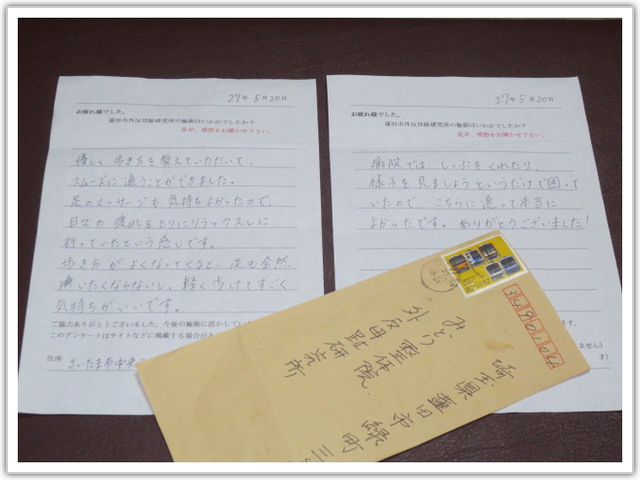 27年5月20日
お疲れ様でした。
蓮田市外反母趾研究所の施術はいかがでしたか?
是非、感想をお聞かせ下さい。
優しく歩き方を教えていただいて、
スムーズに通うことができました。
足のマッサージも気持ちよかったので、
日々の疲れをとりにリラックスしに
行っていたという感じです。
歩き方がよくなってくると、足も全然
痛いたくならないし、軽く歩けてすごく
気持ちがいいです。
ご協力ありがとうございました。今後の施術に活かしてい
このアンケートはサイトなどに掲載する場合があ
住所 さいたま市中央
27年5月20日
お疲れ様でした。
蓮田市外反母趾研究所の施術はいかがでしたか?
是非、感想をお聞かせ下さい。
病院では、しっぷをくれたり、
様子を見ましょうというだけで困って
いたので、こちらに通って本当に
よかったです。ありがとうございました!
ません)
才)
埼玉県蓮田市緑町三
みどり整体院
外反母趾研究所